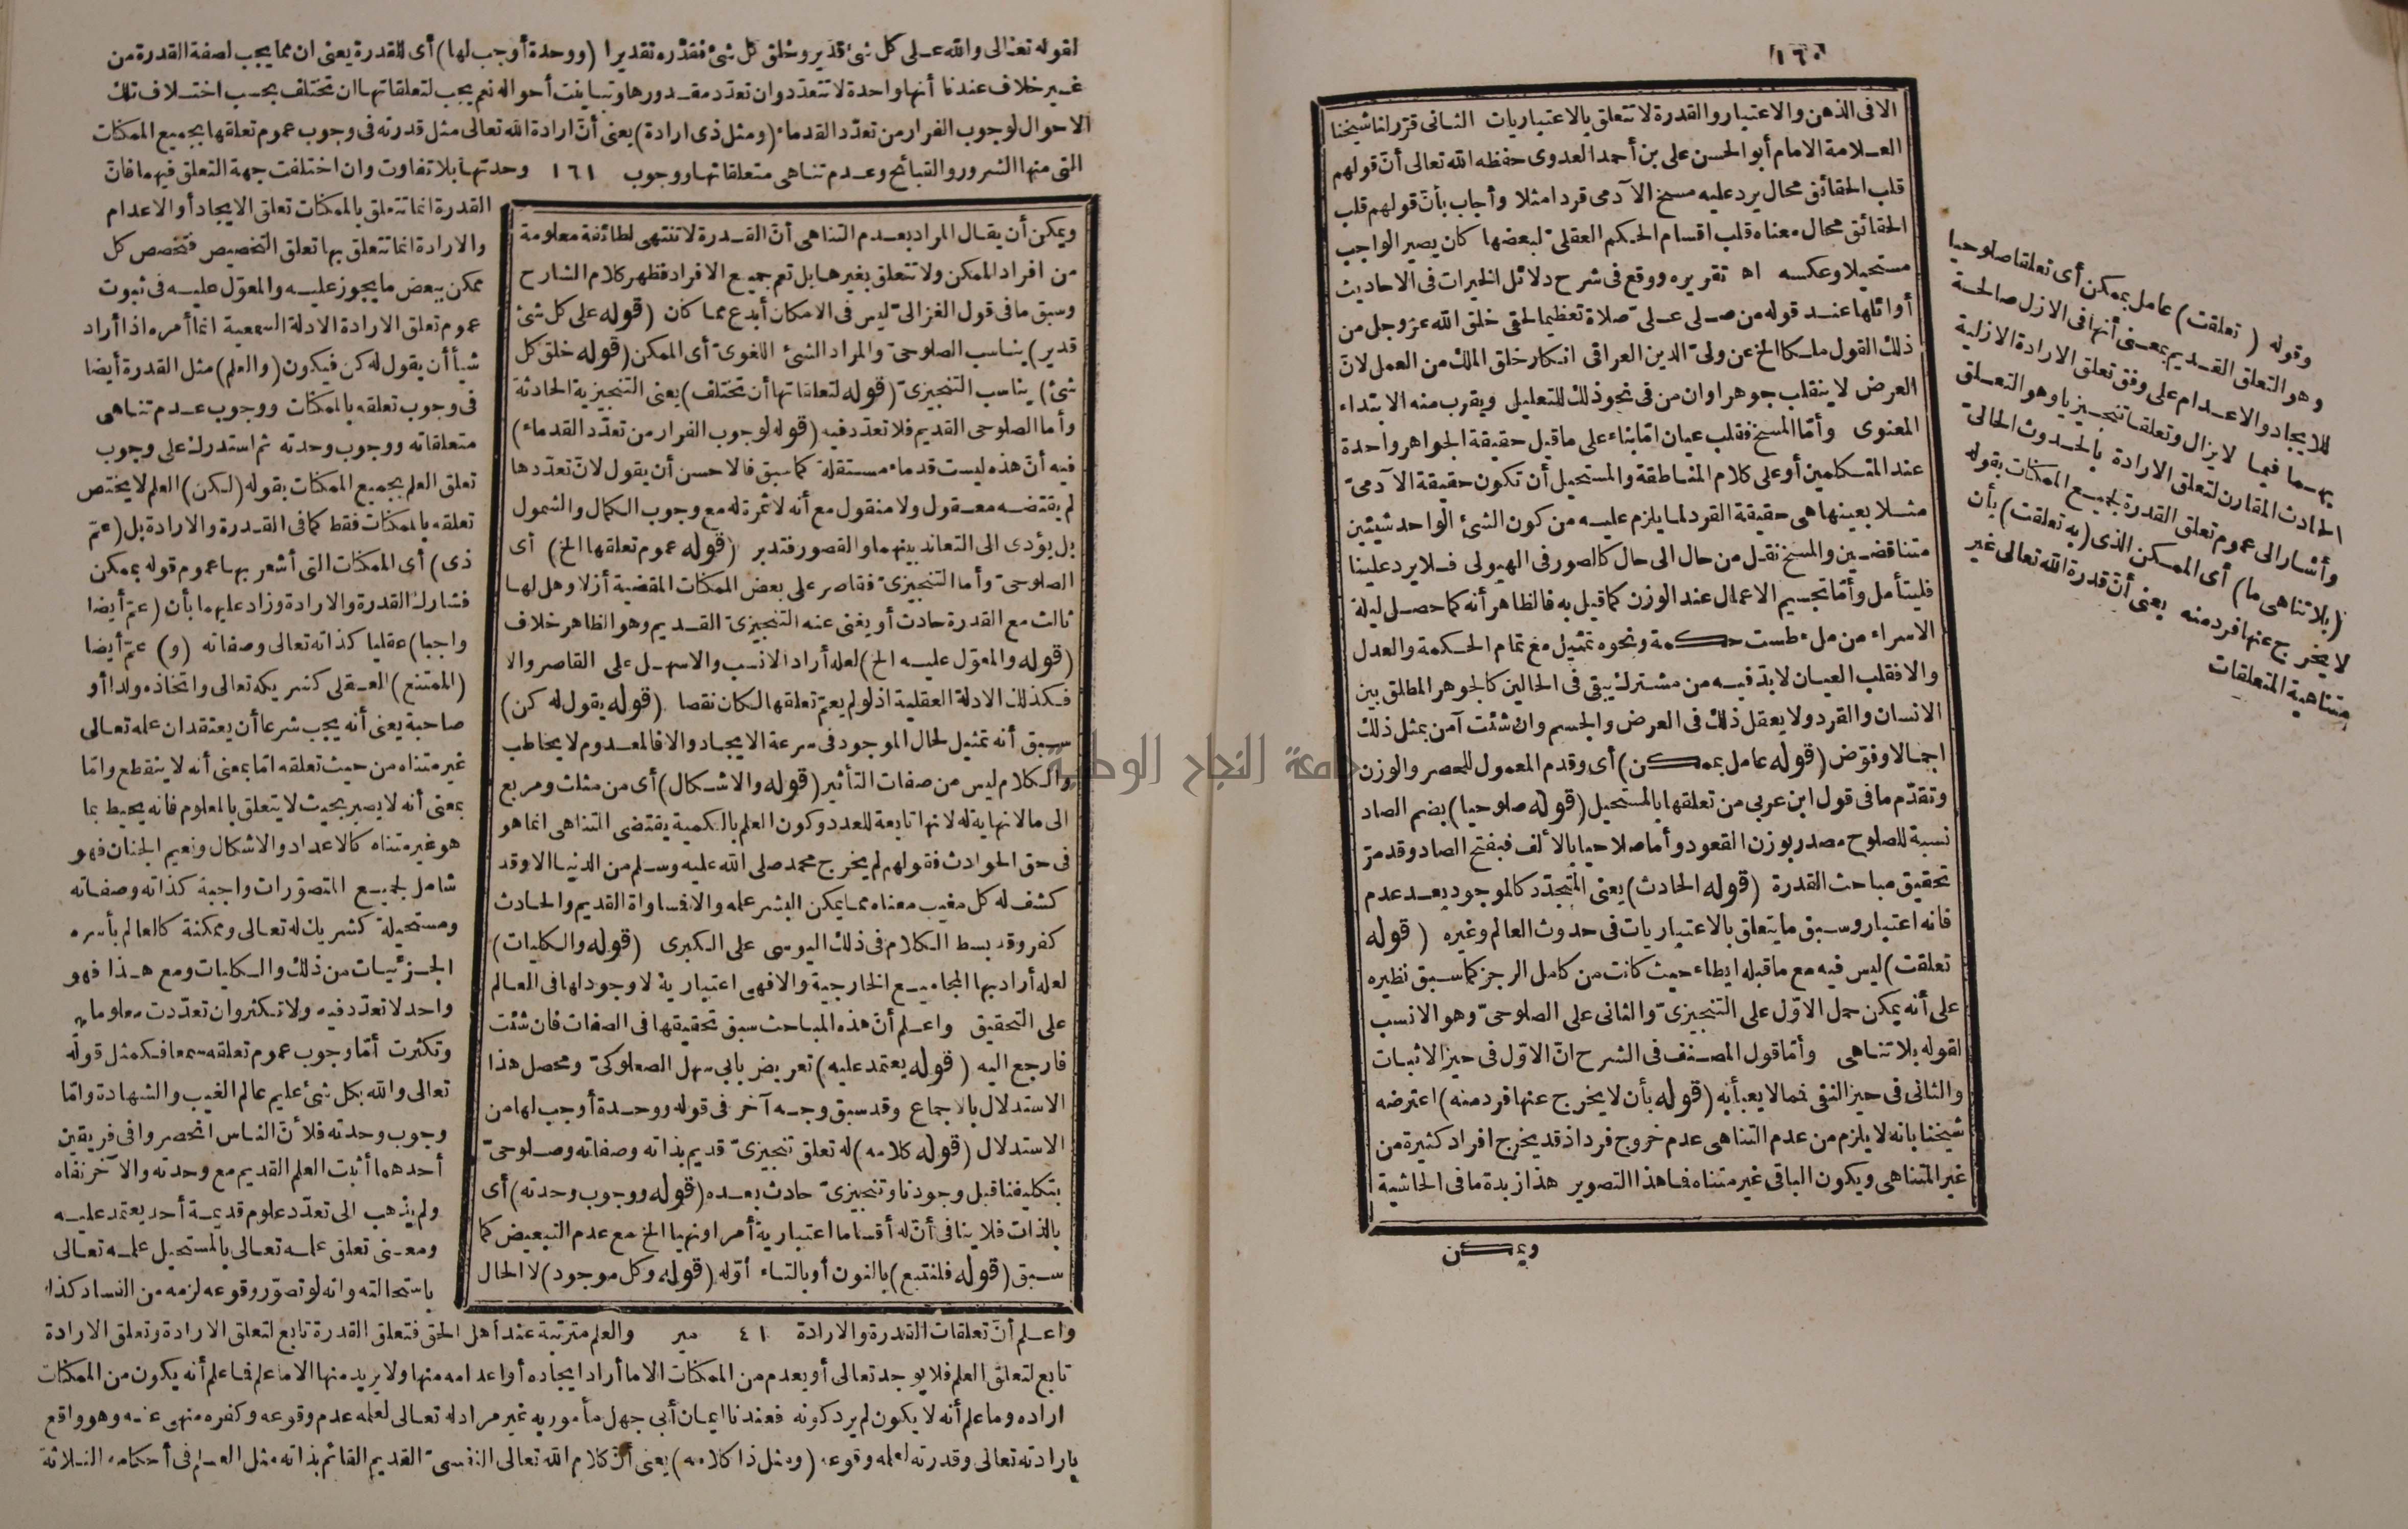 ١٦٠
الا في الذهن والاعتبار والقدرة لا تتعلق بالاعتباريات الثانى قرّر لنا شيخنا
العلامة الامام أبو الحسن على بن أحمد العدوى حفظه الله تعالى أنّ قولهم
قلب الحقائق محال يرد عليه مسخ الآدمى قردا مثلا وأجاب بأنّ قولهم قلب
الحقائق محال معناه قلب اقسام الحكم العقلىّ لبعضها كان يصير الواجب
مستحيلا وعكسه اه تقريره ووقع فى شرح دلائل الخيرات فى الاحاديث
أوائلها عند قوله من صلى علىّ صلاة تعظيما لحقى خلق الله عزوجل من
ذلك القول ملكا الخ عن ولىّ الدين العراقى انكار خلق الملك من العمل لانّ
العرض لا ينقلب جوهرا وان من فى نحو ذلك للتعليل ويقرب منه الابتداء
المعنوى وأمّا المسخ فقلب عيان امّا بناء على ما قيل حقيقة الجواهر واحدة
عند المتكلمين أو على كلام المناطقة والمستحيل أن تكون حقيقة الآدمىّ
مثلا بعينها هى حقيقة القرد لما يلزم عليه من كون الشئ الواحد شيئين
متناقضين والمسخ نقل من حال الى حال كالصور فى الهيولى فلا يرد علينا
فليتأمل وأمّا تجسيم الاعمال عند الوزن كما قيل به فالظاهر أنه كما حصل ليلة
الاسراء من ملء طست حكمة ونحوه تمثيل مع تمام الحكمة والعدل
والا فقلب العيان لا بدّ فيه من مشترك يبقى فى الحالين كالجوهر المطلق بين
الانسان والقرد ولا يعقل ذلك فى العرض والجسم وان شئت آمن بمثل ذلك
اجمالا وفوّض (قوله عامل بممكن) أى وقدم المعمول للحصر والوزن
وتقدّم ما فى قول ابن عربى من تعلقها بالمستحيل (قوله صلوحيا) بضم الصاد
نسبة للصلوح مصدر بوزن القعود وأما صلاحيا بالألف فبفتح الصاد وقد مرّ
تحقيق مباحث القدرة (قوله الحادث) يعنى المتجدّد كالموجود بعد عدم
فانه اعتبار وسبق ما يتعلق بالاعتباريات فى حدوث العالم وغيره (قوله
تعلقت) ليس فيه مع ما قبله ايطاء حيث كانت من كامل الرجز كما سبق نظيره
على أنه يمكن حمل الاوّل على التنجيزىّ والثانى على الصلوحىّ وهو الانسب
لقوله بلا تناهى وأمّا قول المصنف فى الشرح انّ الاوّل فى حيز الاثبات
والثانى فى حيز النفى فمما لا يعبأ به (قوله بأن لا يخرج عنها فرد منه) اعترضه
شيخنا بانه لا يلزم من عدم التناهى عدم خروج فرد اذ قد يخرج افراد كثيرة من
غير المتناهى ويكون الباقى غير متناه فما هذا التصوير هذا زبدة ما فى الحاشية
ويمكن
وقوله (تعلقت) عامل بممكن أى تعلقا صلوحيا
وهو التعلق القديم بمعنى أنها فى الازل صالحة
للايجاد والاعدام على وفق تعلق الارادة الازلية
بهما فيما لا يزال وتعلقا تنجيزيا وهو التعلق
الحادث المقارن لتعلق الارادة بالحدوث الحالىّ
وأشار الى عموم تعلق القدرة لجميع الممكنات بقوله
(بلا تناهى ما) أى الممكن الذى (به تعلقت) بأن
لا يخرج عنها فرد منه يعنى أنّ قدرة الله تعالى غير
متناهية المتعلقات
لقوله تعالى والله على كل شئ قدير وخلق كل شئ فقدّره تقديرا (ووحدة أوجب لها) أى للقدرة يعنى ان مما يجب لصفة القدرة من
غير خلاف عندنا أنها واحدة لا تتعدّد وان تعدّد مقدورها وتباينت أحواله نعم يجب لتعلقاتها ان تختلف بحسب اختلاف تلك
الاحوال لوجوب الفرار من تعدّد القدماء (ومثل ذى ارادة) يعنى أنّ ارادة الله تعالى مثل قدرته فى وجوب عموم تعلقها بجميع الممكنات
التى منها الشرور والقبائح وعدم تناهى متعلقاتها ووجوب ١٦١ وحدتها بلا تفاوت وان اختلفت جهة التعلق فيهما فانّ
القدرة انما تتعلق بالممكنات تعلق الايجاد أو الاعدام
والارادة انما تتعلق بها تعلق التخصيص فتخصص كل
ممكن ببعض ما يجوز عليه والمعوّل عليه فى ثبوت
عموم تعلق الارادة الادلة السمعية انما أمره اذا أراد
شيأ أن يقول له كن فيكون (والعلم) مثل القدرة أيضا
فى وجوب تعلقه بالممكنات ووجوب عدم تناهى
متعلقاته ووجوب وحدته ثم استدرك على وجوب
تعلق العلم بجميع الممكنات بقوله (لكن) العلم لا يختص
تعلقه بالممكنات فقط كما فى القدرة والارادة بل (عمّ
ذى) أى الممكنات التى أشعر بها عموم قوله بممكن
فشارك القدرة والارادة وزاد عليهما بأن (عمّ أيضا
واجبا) عقليا كذاته تعالى وصفاته (و) عمّ أيضا
(الممتنع) العقلى كشريكه تعالى واتخاذه ولدا أو
صاحبة يعنى أنه يجب شرعا أن يعتقد ان علمه تعالى
غير متناه من حيث تعلقه امّا بمعنى أنه لا ينقطع وامّا
بمعنى أنه لا يصير بحيث لا يتعلق بالمعلوم فانه يحيط بما
هو غير متناه كالاعداد والاشكال ونعيم الجنان فهو
شامل لجميع المتصوّرات واجبة كذاته وصفاته
ومستحيلة كشريك له تعالى وممكنة كالعالم بأسره
الجزئيات من ذلك والكليات ومع هذا فهو
واحد لا تعدّد فيه ولا تكثر وان تعدّدت معلوماته
وتكثرت أمّا وجوب عموم تعلقه سمعا فكمثل قوله
تعالى والله بكل شئ عليم عالم الغيب والشهادة وامّا
وجوب وحدته فلأنّ الناس انحصروا فى فريقين
أحدهما أثبت العلم القديم مع وحدته والآخر نفاه
ولم يذهب الى تعدّد علوم قديمة أحد يعتمد عليه
ومعنى تعلق علمه تعالى بالمستحيل علمه تعالى
باستحالته وانه لو تصوّر وقوعه لزمه من الفساد كذا
ويمكن أن يقال المراد بعدم التناهى أنّ القدرة لا تنتهى لطائفة معلومة
من افراد الممكن ولا تتعلق بغيرها بل تعم جميع الافراد فظهر كلام الشارح
وسبق ما فى قول الغزالىّ ليس فى الامكان أبدع مما كان (قوله على كل شئ
قدير) يناسب الصلوحىّ والمراد الشئ اللغوىّ أى الممكن (قوله خلق كل
شئ) يناسب التنجيزىّ (قوله لتعلقاتها أن تختلف) يعنى التنجيزية الحادثة
وأما الصلوحى القديم فلا تعدّد فيه (قوله لوجوب الفرار من تعدّد القدماء)
فيه أنّ هذه ليست قدماء مستقلة كما سبق فالاحسن أن يقول لانّ تعدّدها
لم يقتضه معقول ولا منقول مع أنه لا ثمرة له مع وجوب الكمال والشمول
بل يؤدى الى التعاند بينهما والقصور فتدبر (قوله عموم تعلقها الخ) أى
الصلوحىّ وأما التنجيزىّ فقاصر على بعض الممكنات المقضية أزلا وهل لها
ثالث مع القدرة حادث أو يغنى عنه التنجيزىّ القديم وهو الظاهر خلاف
(قوله والمعوّل عليه الخ) لعله أراد الانسب والاسهل على القاصر والا
فكذلك الادلة العقلية اذ لو لم يعمّ تعلقها لكان نقصا (قوله يقول له كن)
سبق أنه تمثيل لحال الموجود فى سرعة الايجاد والا فالمعدوم لا يخاطب
والكلام ليس من صفات التأثير (قوله والاشكال) أى من مثلث ومربع
الى ما لا نهاية له لانها تابعة للعدد وكون العلم بالكمية يقتضى التناهى انما هو
فى حق الحوادث فقولهم لم يخرج محمد صلى الله عليه وسلم من الدنيا الا وقد
كشف له كل مغيب معناه مما يمكن البشر علمه والا فمساواة القديم والحادث
كفر وقد بسط الكلام فى ذلك اليوسى على الكبرى (قوله والكليات)
لعله أراد بها المجاميع الخارجية والا فهى اعتبارية لا وجود لها فى العالم
على التحقيق واعلم أنّ هذه المباحث سبق تحقيقها فى الصفات فان شئت
فارجع اليه (قوله يعتمد عليه) تعريض بابى سهل الصعلوكىّ ومحصل هذا
الاستدلال بالاجماع وقد سبق وجه آخر فى قوله ووحدة أوجب لها من
الاستدلال (قوله كلامه) له تعلق تنجيزىّ قديم بذاته وصفاته وصلوحىّ
بتكليفنا قبل وجودنا وتنجيزىّ حادث بعده (قوله ووجوب وحدته) أى
بالذات فلا ينافى أنّ له أقساما اعتبارية أمرا ونهيا الخ مع عدم التبعيض كما
سبق (قوله فلنتبع) بالنون أو بالتاء أوّله (قوله وكل موجود) لا الحال
واعلم أنّ تعلقات القدرة والارادة ٤١ مير والعلم مترتبة عند أهل الحق فتعلق القدرة تابع لتعلق الارادة وتعلق الارادة
تابع لتعلق العلم فلا يوجد تعالى أو يعدم من الممكنات الا ما أراد ايجاده أو اعدامه منها ولا يريد منها الا ما علم فما علم أنه يكون من الممكنات
اراده وما علم أنه لا يكون لم يرد كونه فعندنا ايمان أبى جهل مأمور به غير مراد له تعالى لعلمه عدم وقوعه وكفره منهى عنه وهو واقع
بارادته تعالى وقدرته لعلمه وقوعه (ومثل ذا كلامه) يعنى أنّ كلام الله تعالى النفسىّ القديم القائم بذاته مثل العلم فى أحكامه الثلاثة
جامعة النجاح الوطنية